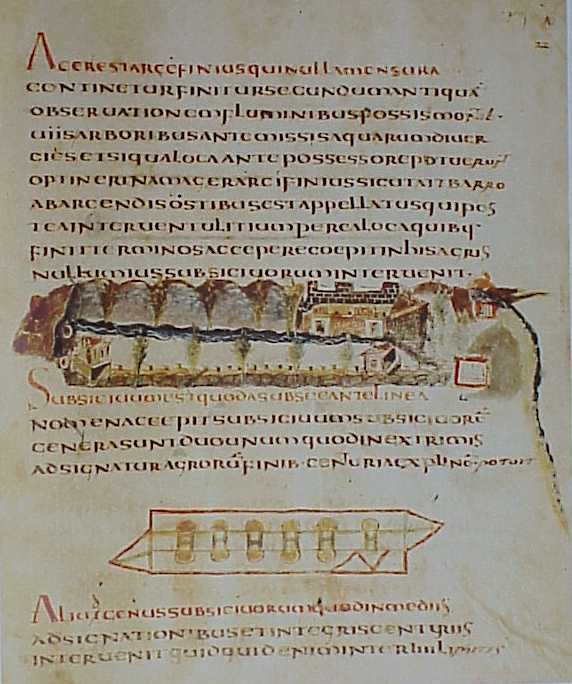 AGERESTARCIFINIUSQUINULLAMENSURA
CONTINETURFINITURSECUNDUMANTIQUĀ
OBSERUATIONEMFLUMINIBUSFOSSISMONT·
UIISARBORIBUSANTEMISSISAQUARUMDIUER
GIISETSIQUALOCAANTEPOSSESSOREPOTUERUNT
OPTINERINAMAGERARCIFINIUSSICUTAITBARRO
ABARCENDISOSTIBUSESTAPPELLATUSQUIPOS
TEAINTERUENTULITIUMPEREALOCAQUIBUS
FINITTERMINOSACCEPERECOEPITINHISAGRIS
NULLUMIUSSUBSICIUORUMINTERUENIT·
SUBSICIUUMESTQUODASUBSECANTELINEA
NOMENACCEPITSUBSICIUUMSUBSICIUORŪ
GENERASUNTDUOUNUMQUODINEXTRIMIS
ADSIGNATURAGRORŪFINIB·CENTURIAEXPLINON·POTUIT
ALIUTGENUSSUBSICIUORUMQUODINMEDIIS
ADSIGNATIONIBUSETINTEGRISCENTURIIS
INTERUENITQUIDQUIDENIMINTERIIIILIMITES